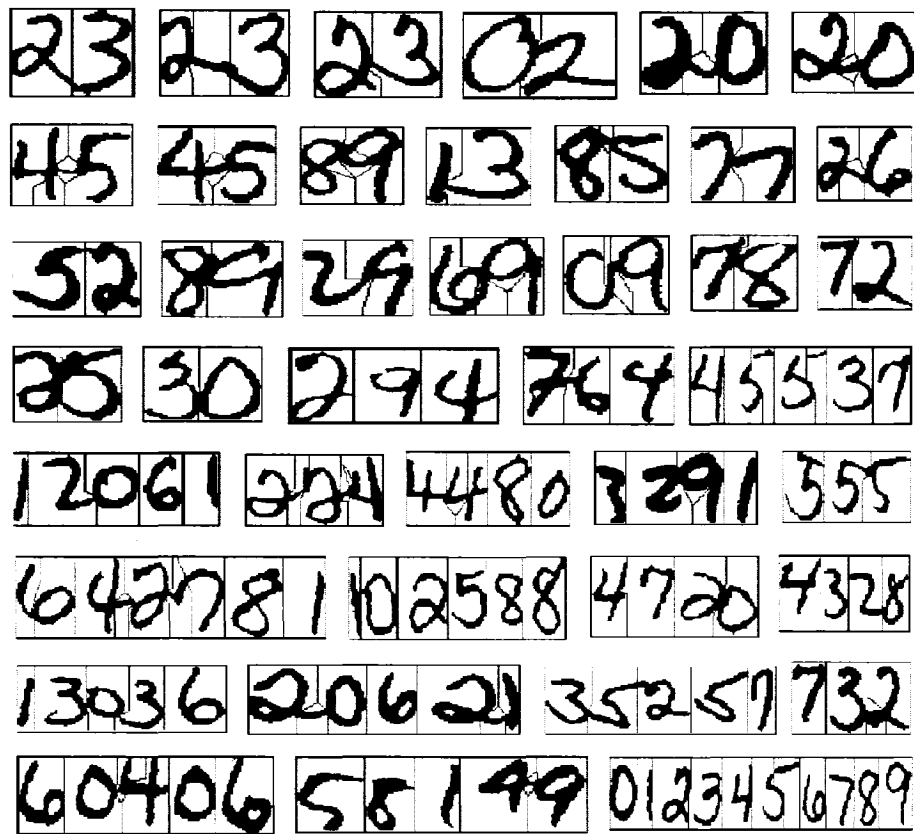 23 23 23 02 20 20
45 45 89 13 85 77 26
52 89 29 699 09 78 72
25 30 294 764 45537
12061 224 4480 3291 555
642781 102588 4720 4328
13036 20621 35257 732
60406 58199 0123456789